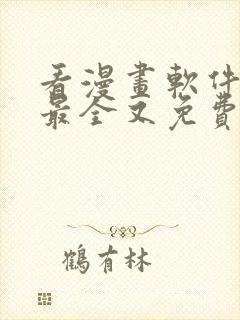 看漫畫軟件
最全又免費
鶴有林